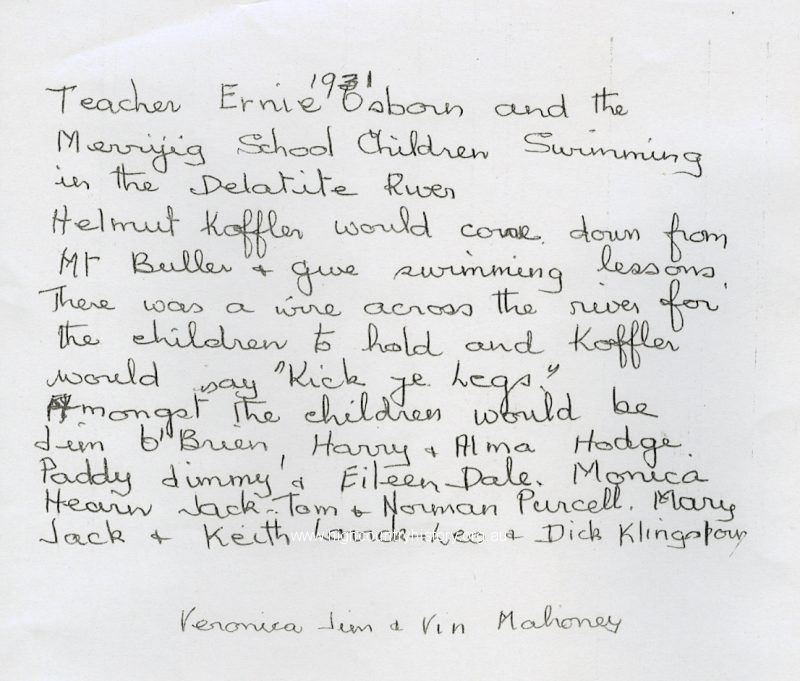 1931
Teacher Ernie O'sborn and the
Merrijig School Children Swimming
in the Delatite River
Helmut Koffler would come down from
Mt Buller + give swimming lessons.
There was a wire across the river for
the children to hold and Koffler
would say "Kick ye Legs."
Amongst The children would be
Jim O'Brien, Harry + Alma Hodge.
Paddy Jimmy + Eileen Dale. Monica
Hearn Jack. Tom + Norman Purcell. Mary
Jack + Keith + Dick Klingsporn
www.highcountryhistory.org.au
Veronica Jim + Vin Mahoney